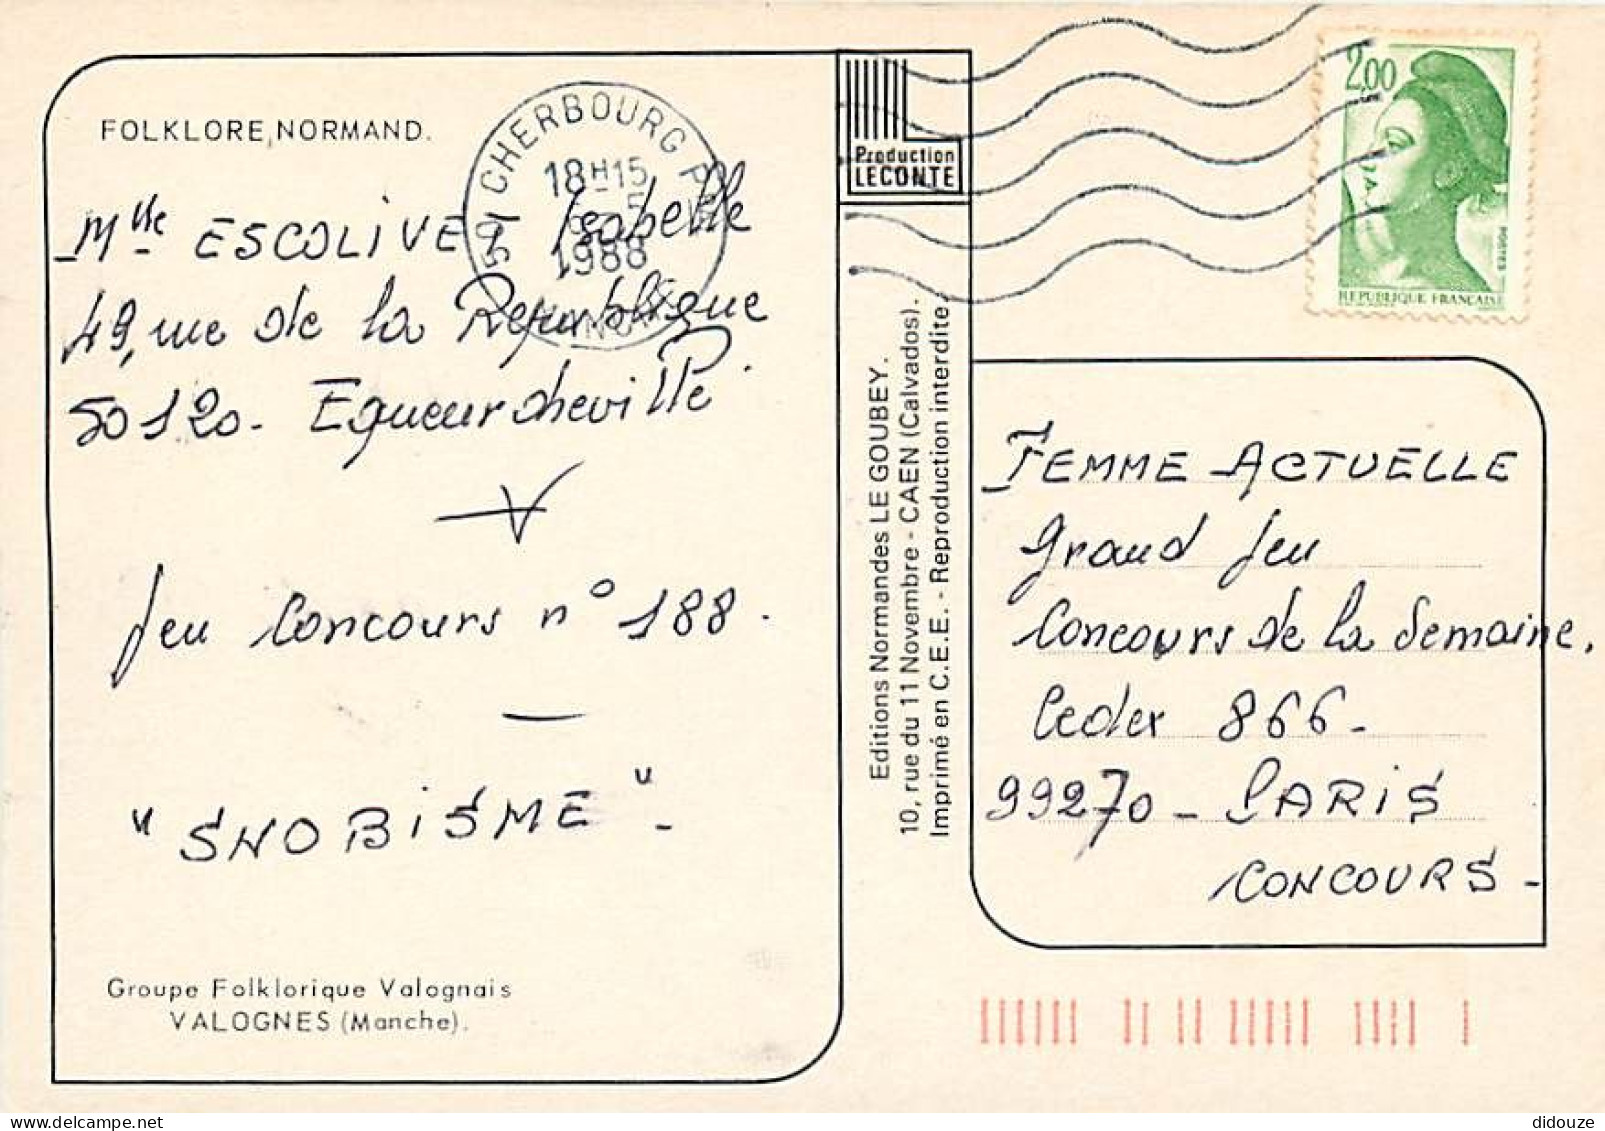 FOLKLORE NORMAND.
Mlle ESCOLIVET Isabelle
49, rue de la République
50120 - Equeurdreville
Jeu Concours n° 188.
"SNOBISME" -
Groupe Folklorique Valognais
VALOGNES (Manche).
50 CHERBOURG
18H15
1988
MANCHE
Production
LECONTE
Editions Normandes LE GOUBEY.
10, rue du 11 Novembre - CAEN (Calvados).
Imprimé en C.E.E. - Reproduction interdite
2,00
POSTES
REPUBLIQUE FRANÇAISE
FEMME ACTUELLE
Grand Jeu
Concours de la Semaine.
Cedex 866 -
99270 - PARIS
CONCOURS -
didouze
delcampe.net